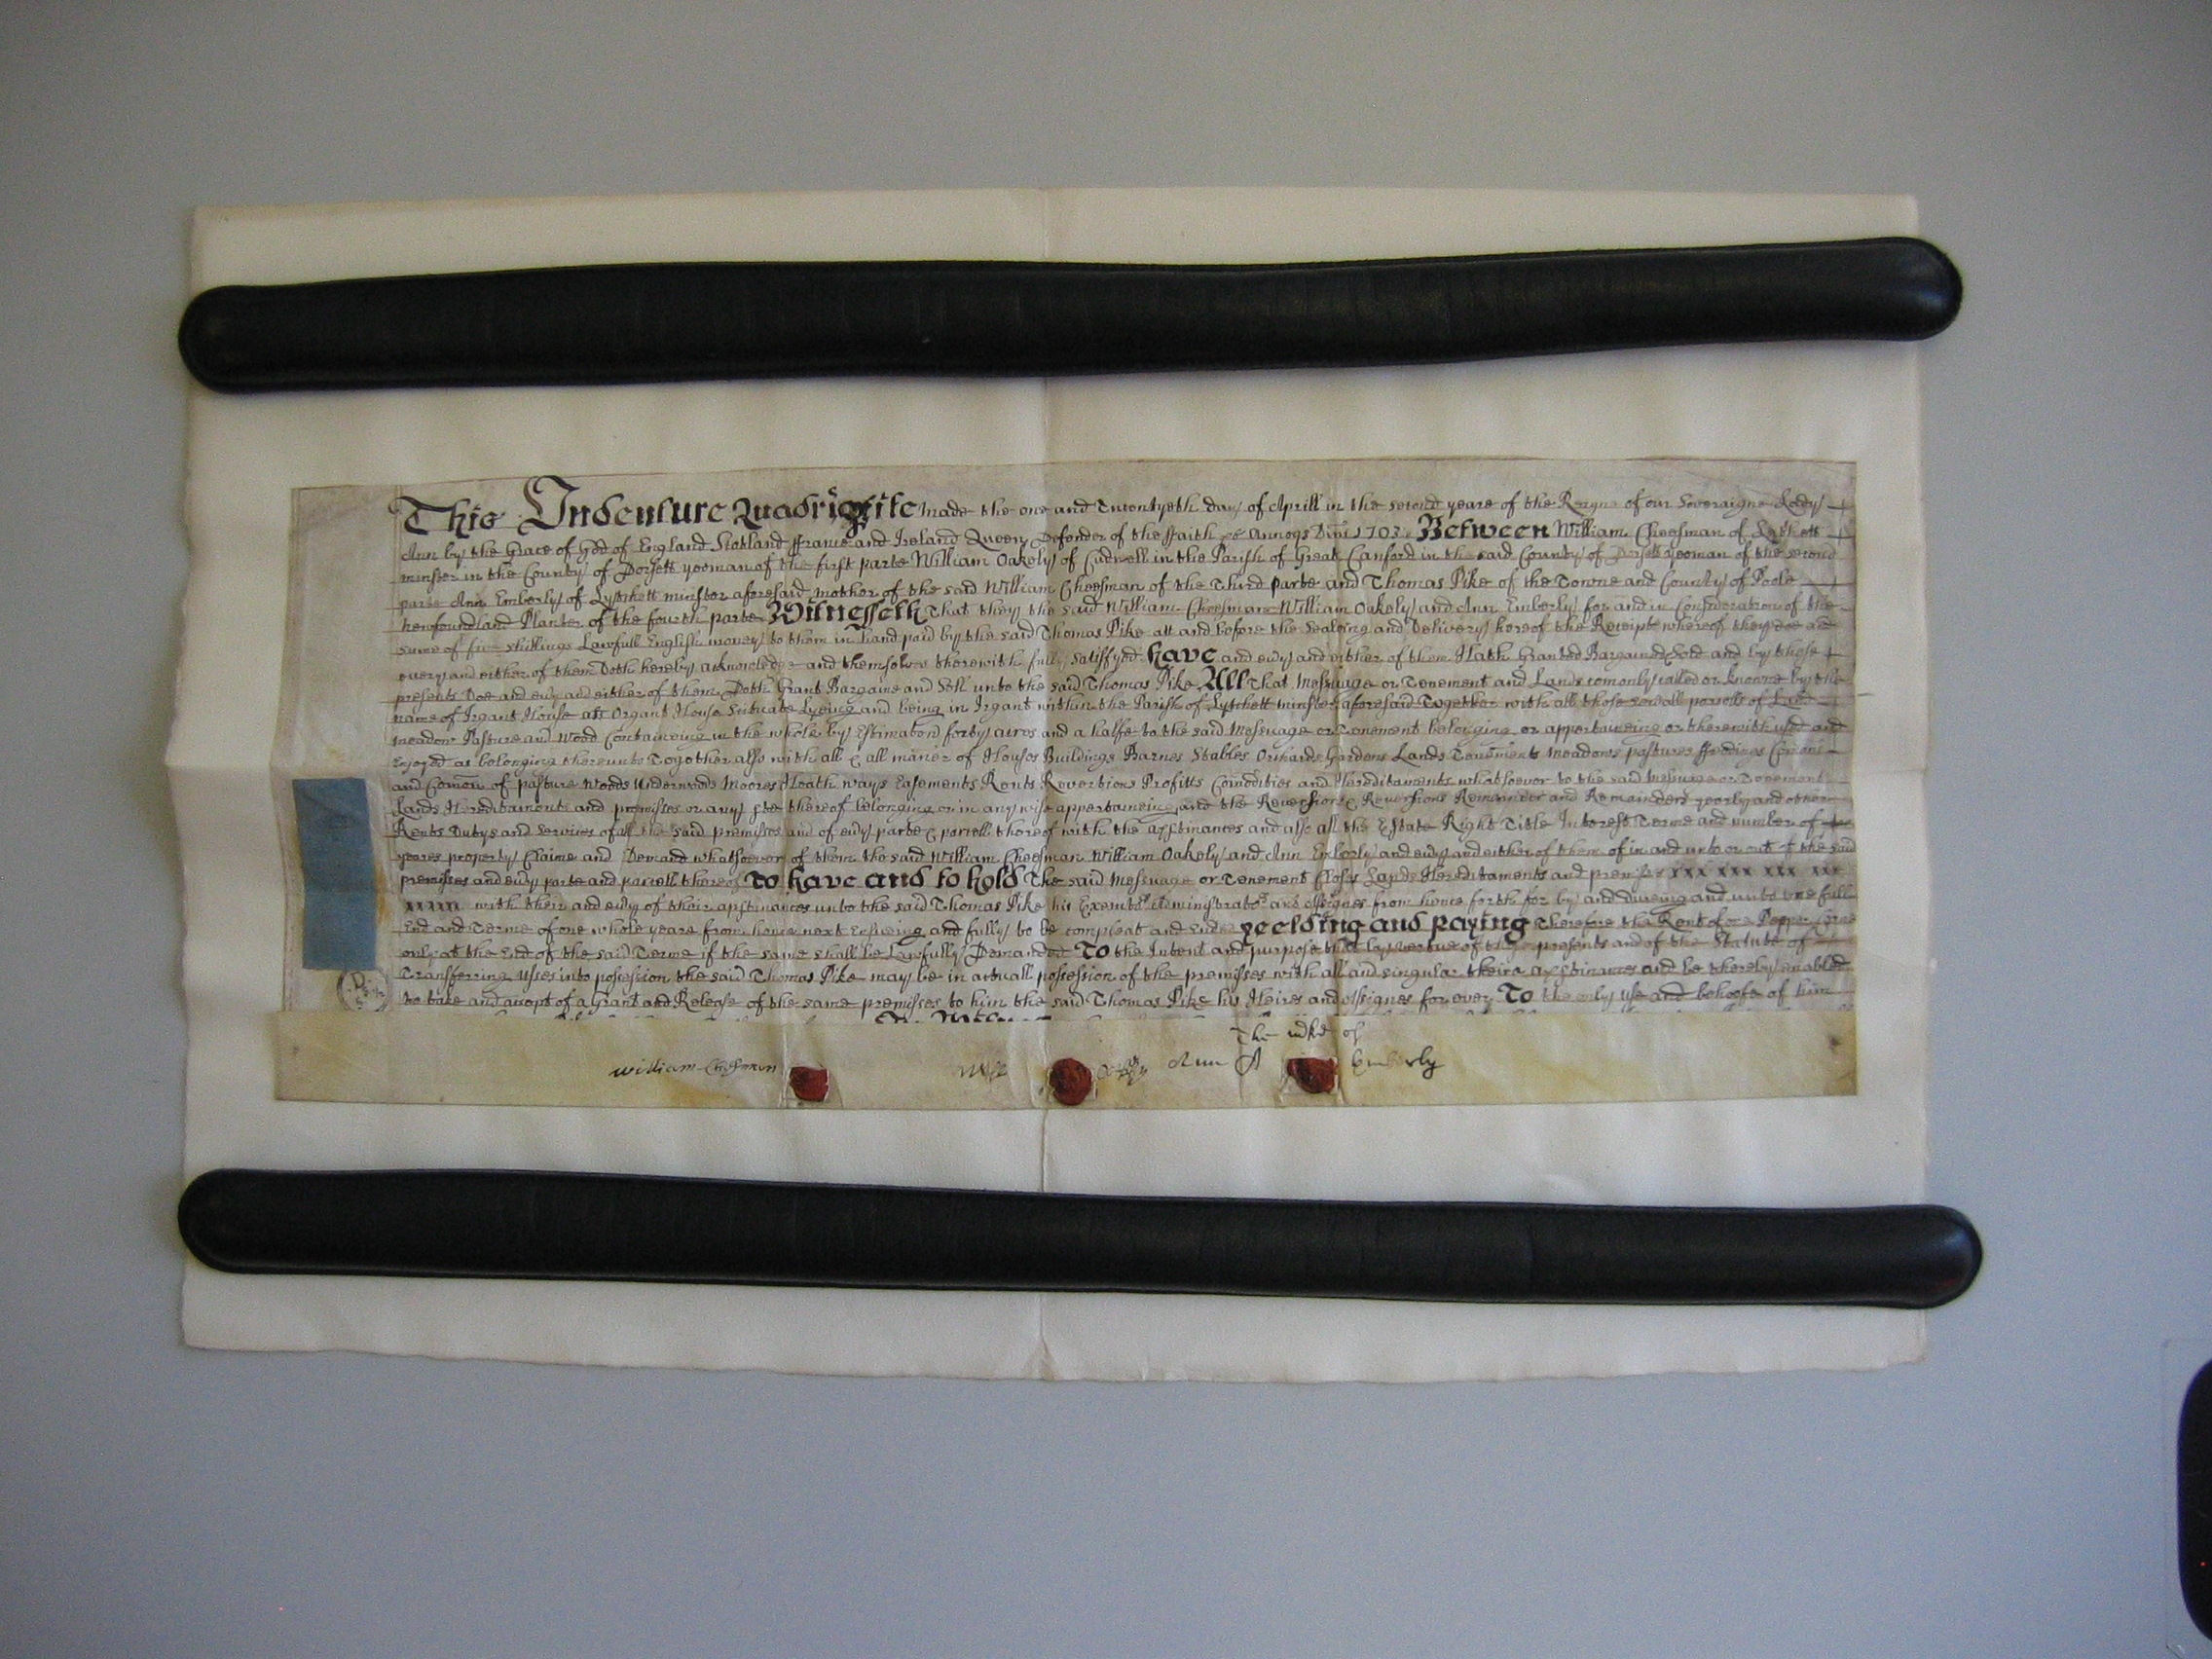 This Indenture Quadripartite made the one and Twentyeth day of Aprill in the second yeare of the Reigne of our Soveraigne Lady
Ann by the Grace of God of England Scotland ffrance and Ireland Queen Defender of the ffaith &c Annoqe Dmi 1703 Between William Cheesman of Lytchett
minster in the County of Dorsett yeoman of the first parte William Oakely of in the Parish of Great Canford in the said County of Dorsett yeoman of the second
parte Ann Emberly of Lytchett minster aforesaid mother of the said William Cheesman of the Third parte and Thomas Pike of the Towne and County of Poole
newfoundland Planter of the fourth parte Witnesseth That they the said William Cheesman William Oakely and Ann Emberly for and in Consideration of the
sume of five shillings Lawfull English money to them in hand paid by the said Thomas Pike att and before the Sealeing and Delivery hereof the Receipt whereof they doe and
every and either of them Doth hereby acknowledge and themselves therewith fully satisfyed have and evy and either of them Hath Granted Bargained & Sold and by these
presents Doe and evy and either of them Doth Grant Bargaine and Sell unto the said Thomas Pike All That Messuage or Tenement and Lands comonly called or knowne by the
name of Irgant House als Organt House Scituate Lyeing and being in Irgant within the Parish of Lytchett minster aforesaid Together with all those sevall parcells of Land
meadow Pasture and Wood Containeing in the whole by Estimation forty acres and a halfe to the said Messuage or Tenement belonging or appertaineing or therewith used and
Enjoyed as belonging thereunto Together also with all & all maner of Houses Buildings Barnes Stables Orchards Gardens Lands Tenements meadows pastures ffeedings Comons
and Comon of pasture Woods Underwoods Moores Heath ways Easements Rents Revertions Profitts Comodities and Hereditaments whatsoever to the said Messuage or Tenement
Lands Hereditaments and premisses or any pte thereof belonging or in any wise appertaineing and the Reversion & Reversions Remainder and Remainders yearly and other
Rents Dutys and Services of all the said premisses and of evy parte & parcell thereof with the apptinances and also all the Estate Right Title Interest Terme and number of
yeares property Claime and Demand whatsoever of them the said William Cheesman William Oakely and Ann Emberly and evy and either of them of in and unto or out of the said
premisses and evy parte and parcell thereof To have and to hold The said Messuage or Tenement Closes Lands Hereditaments and premisses
with their and evy of their apptinances unto the said Thomas Pike his Executrs Administratrs and Assignes from hence forth for by and dureing and unto the full
End and Terme of one whole yeare from hence next Ensueing and fully to be compleat and Ended yeelding and paying Therefore the Rent of one Pepper Corne
only at the End of the said Terme if the same shall be Lawfully Demanded To the Intent and purpose that by vertue of these presents and of the Statute of
Transferring Uses into possession the said Thomas Pike may be in actuall possession of the premisses with all and singular their apptinances and be thereby enabled
to take and accept of a Grant and Release of the same premisses to him the said Thomas Pike his Heires and Assignes for ever To the only use and behoofe of him
The mke of
William Cheesman Ann A Emberly